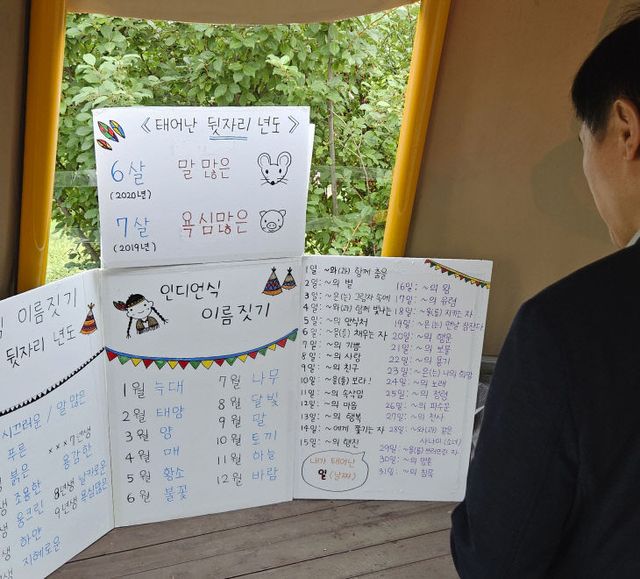 《 태어난 뒷자리 년도 》
6살 말 많은
(2020년)
7살 욕심많은
(2019년)
이름짓기
뒷자리 년도
시끄러운 / 말 많은
푸른
붉은
조용한
웅크린
하얀
지혜로운
×××7년생
용감한
8년생 날카로운
9년생 욕심많은
인디언식
이름짓기
1월 늑대
2월 태양
3월 양
4월 매
5월 황소
6월 불꽃
7월 나무
8월 달빛
9월 달
10월 토끼
11월 하늘
12월 바람
1일 ~와(과) 함께 춤을
2일 : ~의 별
3일 : ~은(는) 그림자 속에
4일 : ~와(과) 함께 빛나는
5일 : ~의 안식처
6일 : ~을(를) 채우는 자
7일 : ~의 기쁨
8일 : ~의 사랑
9일 : ~의 친구
10일 : ~을(를) 보라!
11일 : ~의 속삭임
12일 : ~의 마음
13일 : ~의 행복
14일 : ~에게 쫓기는 자
15일 : ~의 행진
내가 태어난
일 (날짜)
16일 : ~의 왕
17일 : ~의 유령
18일 : ~을(를) 지키는 자
19일 : ~은(는) 맨날 잠잔다
20일 : ~의 행운
21일 : ~의 보물
22일 : ~의 용기
23일 ~은(는) 나의 희망
24일 : ~의 노래
25일 : ~의 정령
26일 : ~의 파수꾼
27일 : ~의 천사
28일 : ~와(과) 같은
사나이 (소녀)
29일 : ~을(를) 쓰러뜨린 자
30일 : ~의 영혼
31일 : ~의 침묵